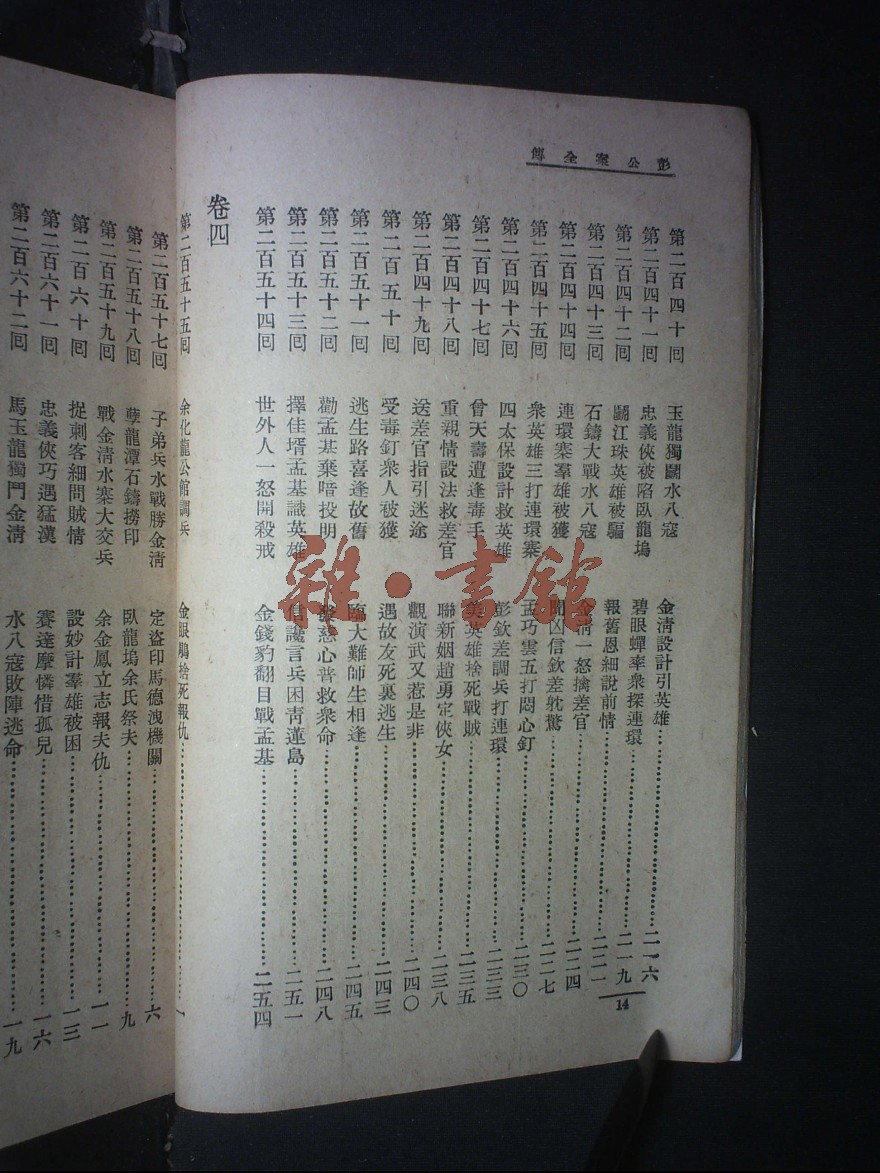 彭公案全傳
第二百四十回 玉龍獨鬭水八寇 金清設計引英雄 二一六
第二百四十一回 忠義俠被陷臥龍塢 碧眼蟬率衆探連環 二一九
第二百四十二回 鬭江珠英雄被騙 報舊恩細說前情 二二一
第二百四十三回 石鑄大戰水八寇 金清一怒擒差官 二二四
第二百四十四回 連環寨羣雄被獲 聞凶信欽差躭驚 二二七
第二百四十五回 衆英雄三打連環寨 孟巧雲五打悶心釘 二三〇
第二百四十六回 四太保設計救英雄 彭欽差調兵打連環 二三三
第二百四十七回 曾天壽遭逢毒手 美英雄捨死戰賊 二三五
第二百四十八回 重親情設法救差官 聯新姻趙勇定俠女 二三八
第二百四十九回 送差官指引迷途 觀演武又惹是非 二四〇
第二百五十回 受毒釘衆人被獲 遇故友死裏逃生 二四三
第二百五十一回 逃生路喜逢故舊 臨大難師生相逢 二四五
第二百五十二回 勸孟基棄暗投明 發慈心普救衆命 二四八
第二百五十三回 擇佳壻孟基識英雄 信讒言兵困靑蓮島 二五一
第二百五十四回 世外人一怒開殺戒 金錢豹翻目戰孟基 二五四
卷四
第二百五十五回 余化龍公館調兵 金眼鵰捨死報仇 一
14
第二百五十七回 子弟兵水戰勝金淸 定盜印馬德洩機關 六
第二百五十八回 孽龍潭石鑄撈印 臥龍塢余氏祭夫 九
第二百五十九回 戰金淸水寨大交兵 余金鳳立志報夫仇 一一
第二百六十回 捉刺客細問賊情 設妙計羣雄被困 一三
第二百六十一回 忠義俠巧遇猛漢 賽達摩憐惜孤兒 一六
第二百六十二回 馬玉龍獨鬥金淸 水八寇敗陣逃命 一九
雜·書館